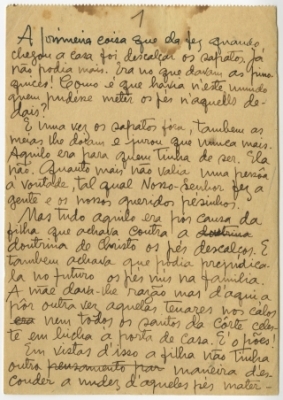 1
A primeira coisa que ela fez quando
chegou a casa foi descalçar os sapatos. Já
não podia mais. Era no que davam as
Como é que havia n'este mundo
quem pudesse meter os pés n'aquelles de-
dais?
E uma vez os sapatos fóra, tambem as
meias lhe doiam e jurou que nunca mais.
Aquilo era para quem tinha de ser. Ela
não. Quanto mais não valia uma pessoa
à vontade, tal qual Nosso-Senhor fez a
gente e os nossos queridos pésinhos.
Mas tudo aquilo era por causa da
filha que achava contra a doutrina
doutrina de Cristo os pés descalços. E
tambem achava que podia prejudica-
la no futuro os pés nus na família.
A mãe dava-lhe razão mas d'aqui a
pôr outra vez aqueles tenazes nos calos
nem todos os santos da Côrte celes-
te em bicha à porta de casa. E o pões!
Em vistas d'isso a filha não tinha
outro pensamento par maneira d'es-
conder a nudez d'aqueles pés mater-